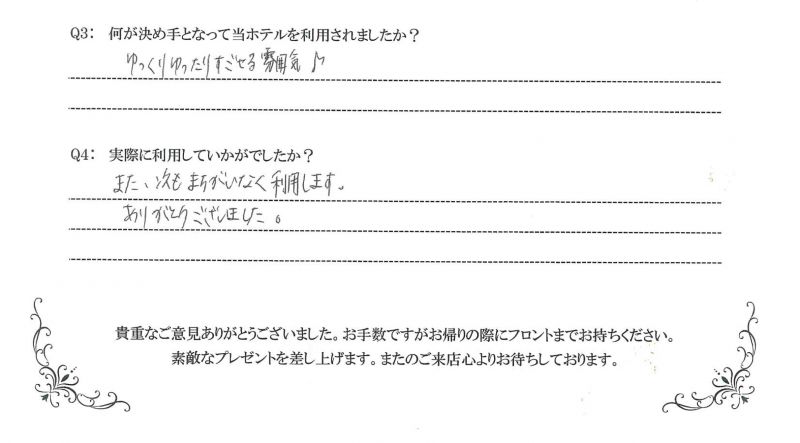 Q3: 何が決め手となって当ホテルを利用されましたか？
ゆっくりゆったりすごせる雰囲気♪
Q4: 実際に利用していかがでしたか？
また、次もまちがいなく利用します。
ありがとうございました。
貴重なご意見ありがとうございました。お手数ですがお帰りの際にフロントまでお持ちください。
素敵なプレゼントを差し上げます。またのご来店心よりお待ちしております。